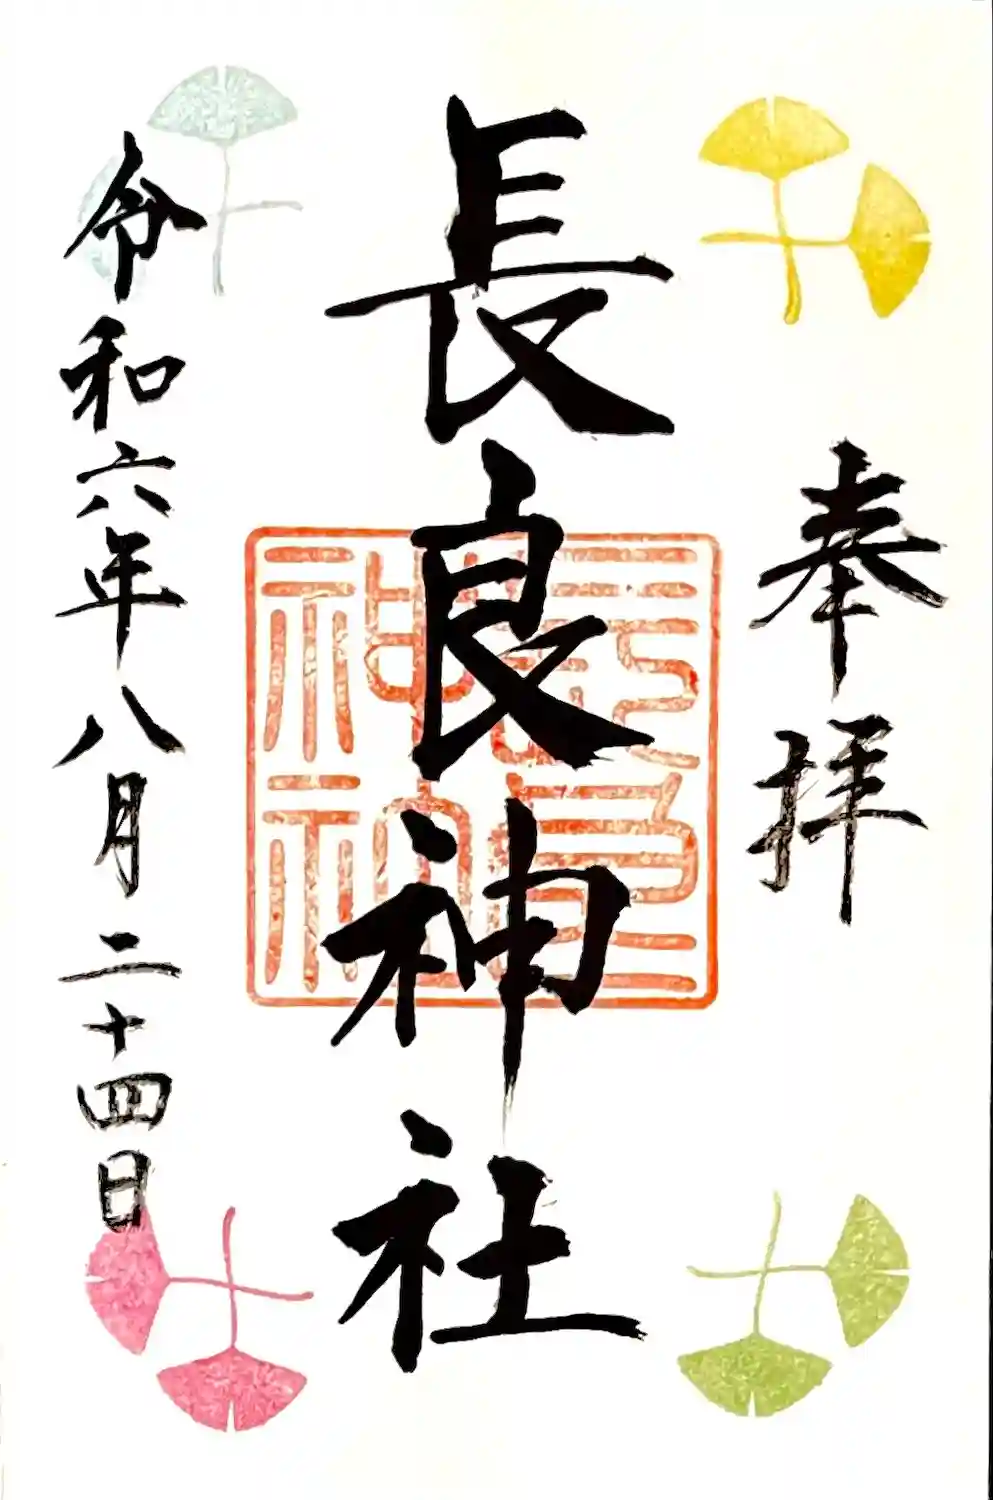 奉拝
長良神社
令和六年八月二十四日
長良
神社